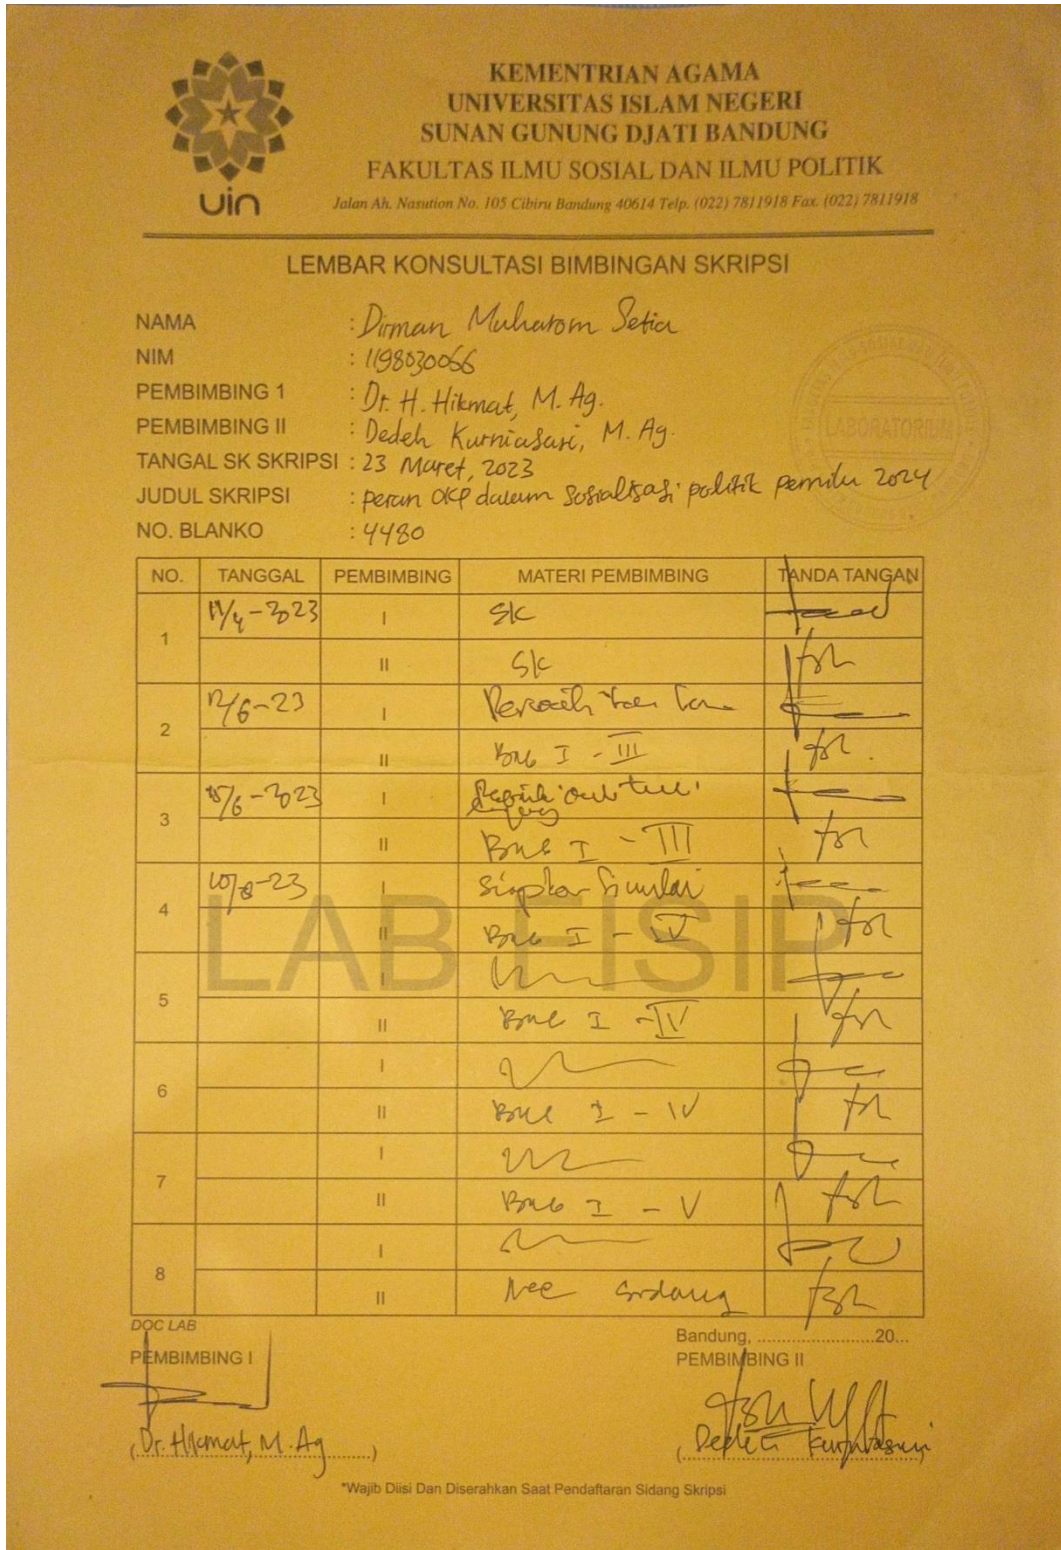 KEMENTRIAN AGAMA
UNIVERSITAS ISLAM NEGERI
SUNAN GUNUNG DJATI BANDUNG
FAKULTAS ILMU SOSIAL DAN ILMU POLITIK
uin
Jalan Ah. Nasution No. 105 Cibiru Bandung 40614 Telp. (022) 7811918 Fax. (022) 7811918
LEMBAR KONSULTASI BIMBINGAN SKRIPSI
NAMA : Dirman Muharom Setia
NIM : 1198030066
PEMBIMBING 1 : Dr. H. Hikmat, M. Ag.
PEMBIMBING II : Dedeh Kurniasari, M. Ag.
TANGAL SK SKRIPSI : 23 Maret, 2023
JUDUL SKRIPSI : peran OKP dalam Sosialisasi politik pemilu 2024
NO. BLANKO : 4480
LABORATORIUM
NO. TANGGAL PEMBIMBING MATERI PEMBIMBING TANDA TANGAN
1 I SK
II SK
2 12/6-23 I
II Bab I - III
3 I
II Bab I - III
4 I Siapkan
II Bab I - IV
5 I
II Bab I - IV
6 I
II Bab I - IV
7 I
II Bab I - V
8 I
II Acc Sidang
LAB FISIP
DOC LAB
Bandung, ........................20...
PEMBIMBING I PEMBIMBING II
(Dr. Hikmat, M. Ag) (Dedeh Kurniasari)
*Wajib Diisi Dan Diserahkan Saat Pendaftaran Sidang Skripsi